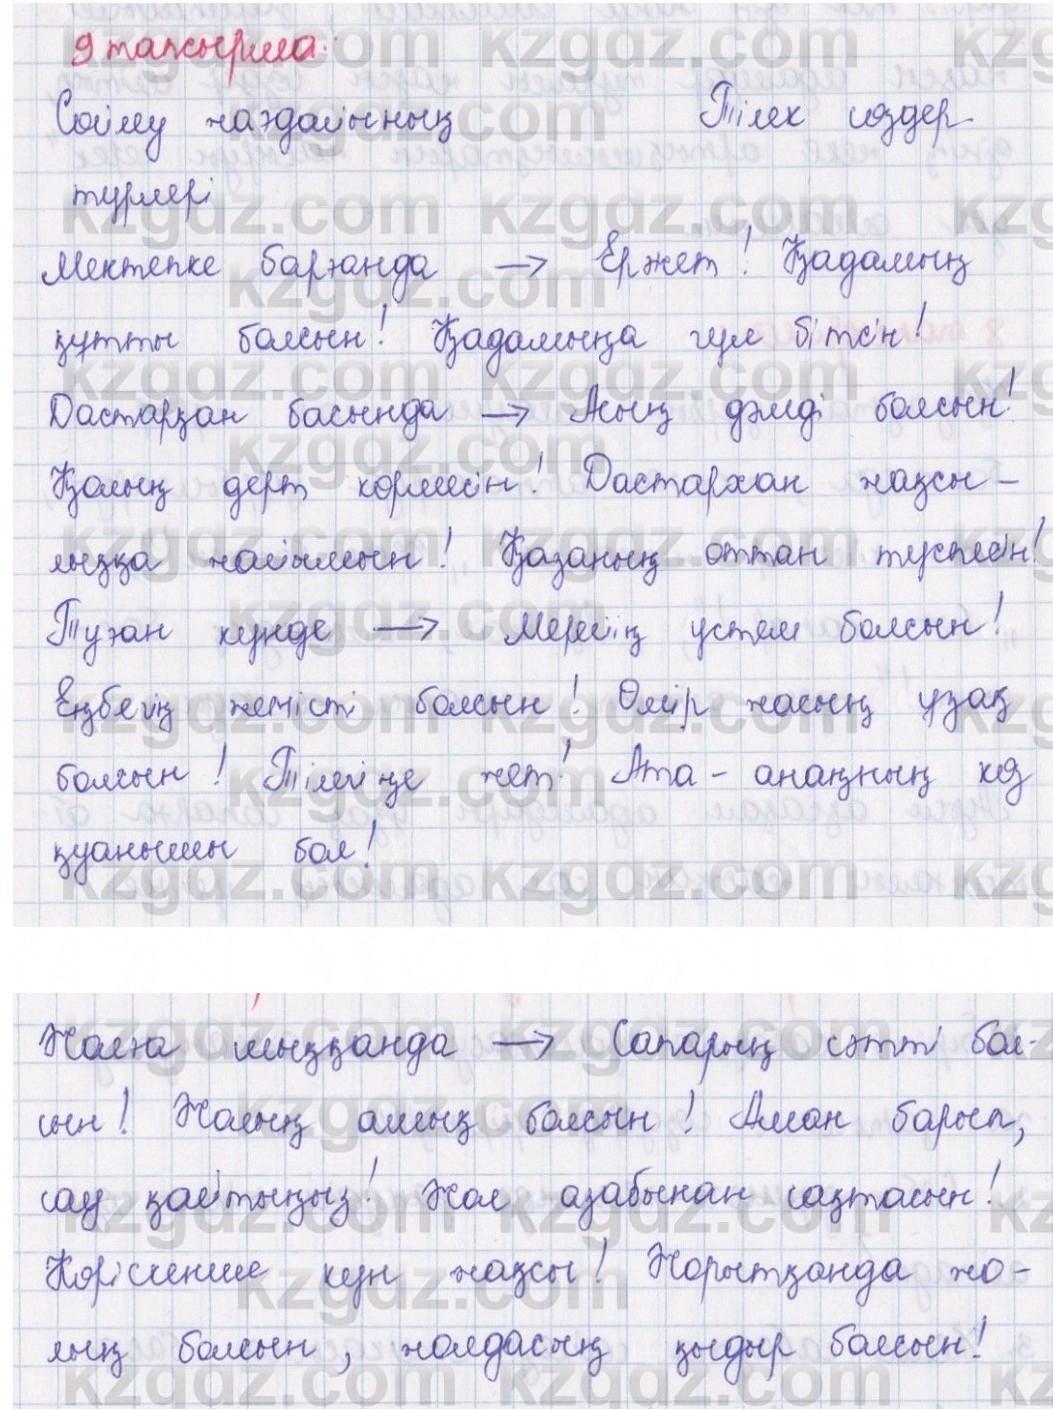 9 тапсырма.
Сөйлеу жағдайының Тілек сөздер
түрлері
Мектепке барғанда → Ержет! Қадамың
құтты болсын! Қадамыңа гүл бітсін!
Дастарқан басында → Асың дәмді болсын!
Қолың дерт көрмесін! Дастархан жақсы-
лыққа жайылсын! Қазаның оттан түспесін!
Туған күнде → Мерейің үстем болсын!
Еңбегің жемісті болсын! Өмір жасың ұзақ
болсын! Тілегіңе жет! Ата-анаңның көз
қуанышы бол!
Жолға шыққанда → Сапарың сәтті бол-
сын! Жолың ашық болсын! Аман барып,
сау қайтыңыз! Жол азабынан сақтасын!
Көріскенше күн жақсы! Жорытқанда жо-
лың болсын, жолдасың қыдыр болсын!
kzgdz.com